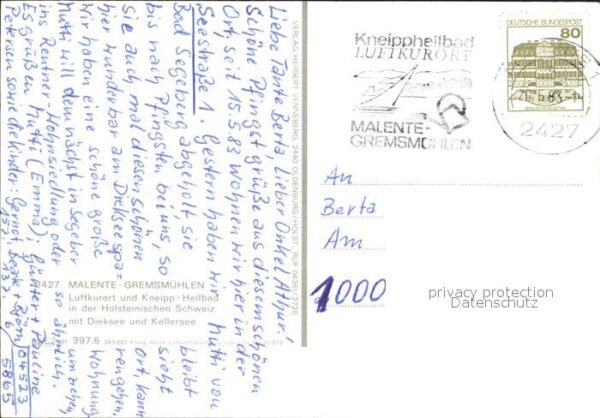 Liebe Tante Berta, Lieber Onkel Athur!
Schöne Pfingstgrüße aus diesem schönen
Ort, seit 15.5.83 Wohnen wir hier in der
Seestraße 1. Gestern haben wir Mutti von
Bad Segeberg abgeholt, sie bleibt
bis nach Pfingsten bei uns, so sieht
sie auch mal diesen schönen Ort, kann
hier wunderbar am Dieksee spa=
rengehen. Wir haben eine schöne große Wohnung.
Mutti will demnächst in Segeber umziehen
ins Rentner-Wohnsiedlung oder so ähnlich.
Es grüßen Mutti (Emma), Günter + Pauline
Petersen sowie die Kinder: Gernot, Beate + Björn
04523
5865
VERLAG HERBERT VENNEBERG, 2440 OLDENBURG/HOLST. RUF 04361/2726
2427 MALENTE - GREMSMÜHLEN
Luftkurort und Kneipp-Heilbad
in der Holsteinischen Schweiz
mit Dieksee und Kellersee
397.6
Kneippheilbad
LUFTKURORT
MALENTE-
GREMSMÜHLEN
DEUTSCHE BUNDESPOST
80
5.83
2427
An
Berta
Am
1000
privacy protection
Datenschutz